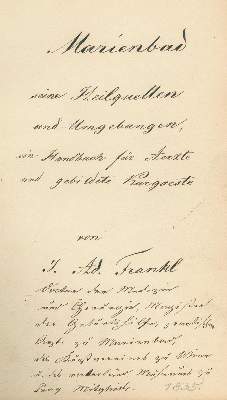 Marienbad
seine Heilquellen
und Umgebungen,
ein Handbuch für Aerzte
und gebildete Kurgaeste
von
J. Ad. Frankl
Doctor der Medizin
und Chirurgie, Magister
der Geburtshilfe,
Arzt zu Marienbad,
zu Wien
zu
Prag Mitglied.
1835.